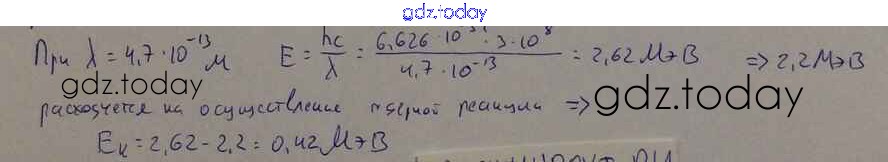 gdz.today
При λ = 4,7·10⁻¹³ м E = hc/λ = 6,626·10 ·3·10⁸/4,7·10⁻¹³ = 2,62 МэВ => 2,2 МэВ
gdz.today
расходуется на осуществление ядерной реакции =>
gdz.today
Eк = 2,62 - 2,2 = 0,42 МэВ